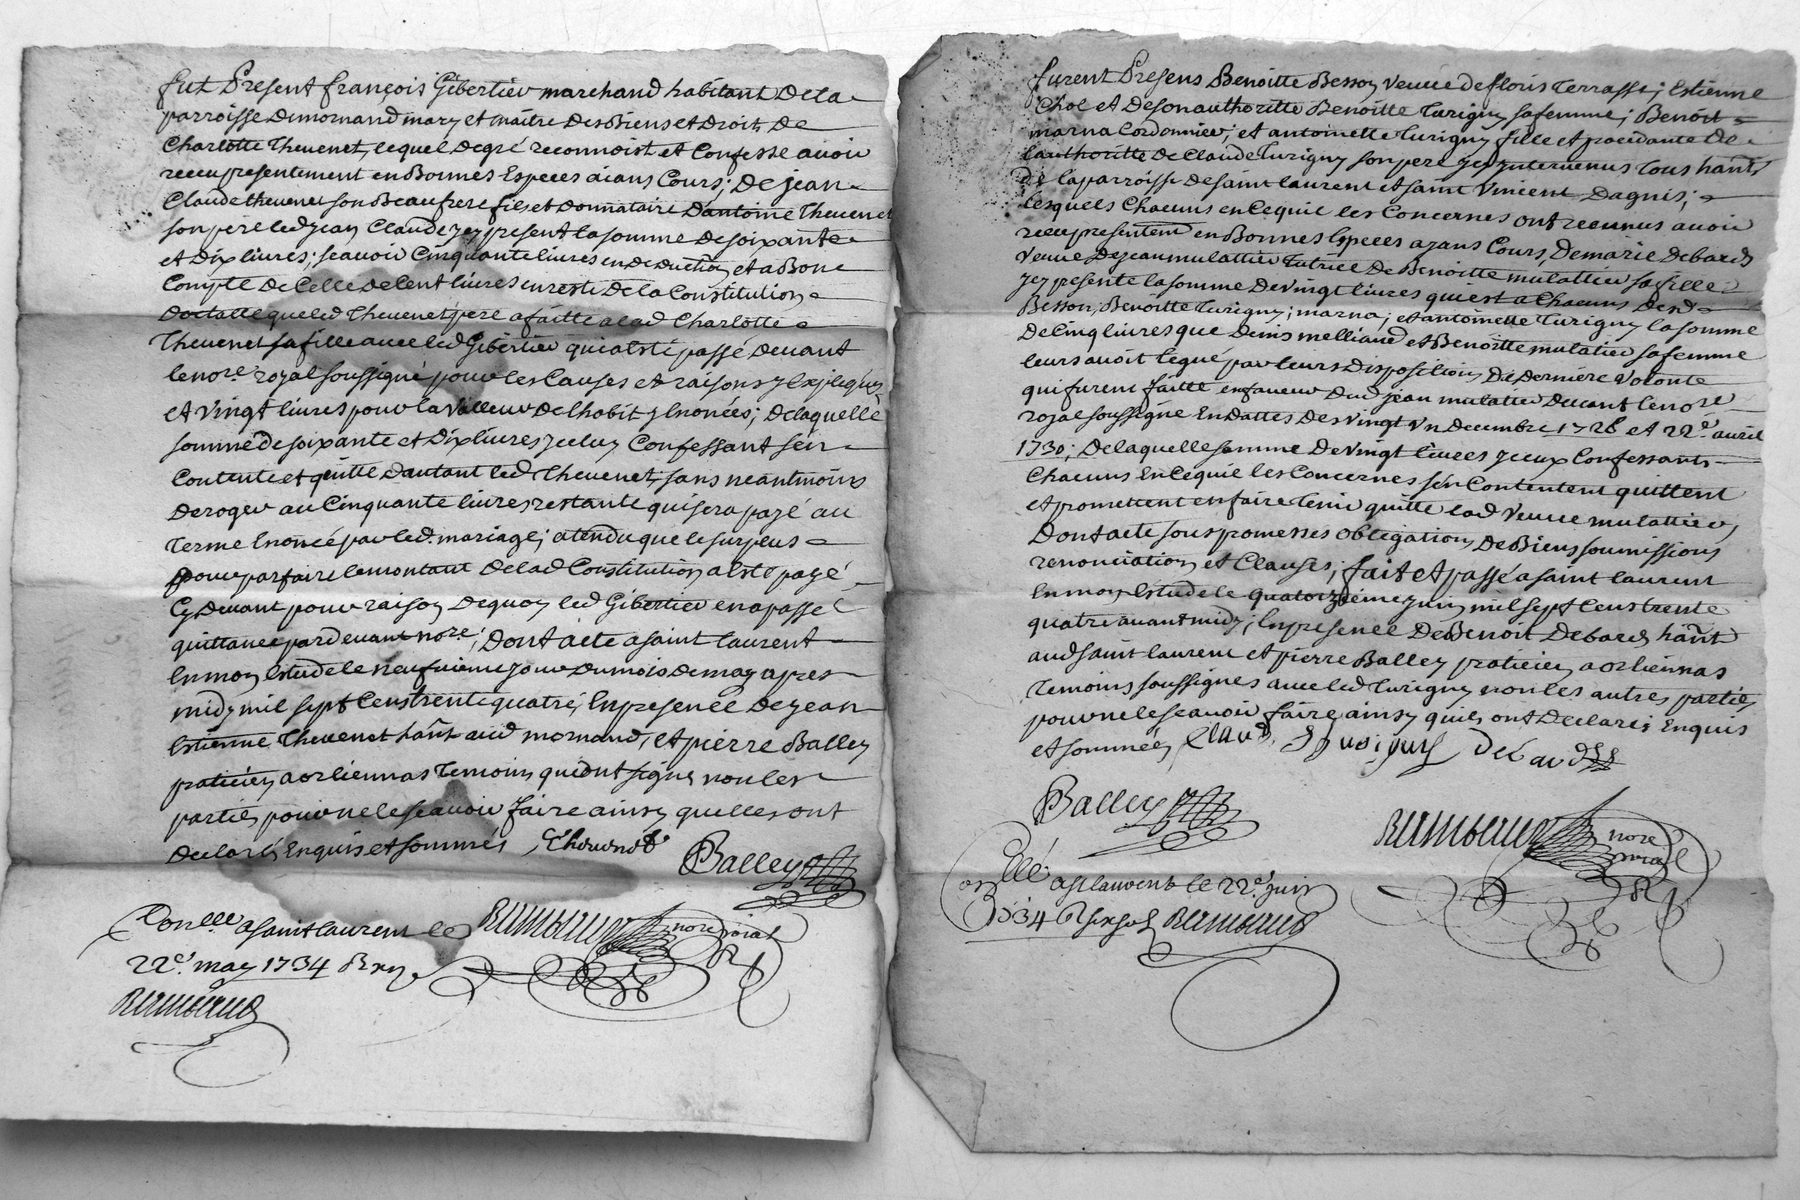 fut Present françois Gibertier marchand habitant dela
parroisse demornand mary et maitre desbiens et droits de
Charlotte Thevenet, lequel degré reconnoist et Confesse auoir
receu presentement en Bonnes Especes aians Cours; de jean
Claude thevenet son Beaufrere fils et donnataire dantoine Thevenet
son pere led jean Claude jcy present la somme de soixante
et dix liures; scauoir Cinquante liures en deduction et a Bon
Compte de Celle de Cent liures en reste de la Constitution
dotalle que led Thevenet pere a faitte a lad Charlotte
Thevenet sa fille auec led Gibertier qui a esté passé deuant
le nore. royal soussigné pour les Causes et raisons y Expliquées
et vingt liures pour la valleur de lhabit y Enoncés; de laquelle
somme de soixante et dix liures jceluy Confessant sen
Contente et quitte dautant led Thevenet, sans neantmoins
deroger au Cinquante liures restante qui sera payé au
terme Enoncé par led. mariage; atendu que le surplus
pour parfaire le montant de lad Constitution a esté payé
Cy deuant pour raison dequoy led Gibertier en a passé
quittance pardeuant nore; dont acte a saint laurent
En mon Estude le neufuieme jour du mois de may apres
midy mil sept Cens trente quatre; En presence de jean
Estienne Thevenet hant aud mornand, et pierre Balley
praticien a orliennas temoins qui ont signes non les
parties pour ne le scauoir faire ainsy quelles ont
declaré Enquis et sommés Thevenet
Balley
nore roial
Con.lle a saint laurent le
22e. may 1734
furent Presens Benoitte Besson veuue de floris Terrasse; Estienne
Chol et de son authoritte Benoitte Turigny sa femme; Benoit
marna Cordonnier; et antoinette Turigny fille et procedante de
lauthoritte de Claude Turigny son pere jcy jnteruenus tous hants
de la parroisse de saint laurent et saint Vincent dagnis;
lesquels Chacuns en Ce qui les Concernes ont reconnus auoir
receu presentemt en Bonnes Especes ayans Cours, de marie debards
veuue de jean mulattier Tutrice de Benoitte mulattier sa fille
jcy presente la somme de vingt liures qui est a Chacuns desd
Besson, Benoitte Turigny; marna; et antoinette Turigny la somme
de Cinq liures que denis melliand et Benoitte mulatier sa femme
leurs auoit legué par leurs disposition de derniere volonte
qui furent faitte en faueur dud jean mulattier deuant le nore
royal soussigné En dattes des vingt vn decembre 1728 et 22e. auril
1730; de laquelle somme de vingt liures jceux Confessants
Chacuns En Ce qui les Concernes sen Contentent quittent
et promettent en faire tenir quitte lad veuue mulattier,
dont acte sous promesses obligations de Biens soumissions
renonciations et Clauses; fait et passé a saint laurent
En mon Estude le quatorzieme juin mil sept Cens trente
quatre auant midy; En presence de Benoit debards hant
aud saint laurent et pierre Balley praticien a orliennas
temoins soussignes auec led Turigny non les autres parties
pour ne le scauoir faire ainsy quils ont declaré; Enquis
et sommés, Claude Turigny debards
Balley
nore roial
Con.llé a st laurent le 22e. juin
1734